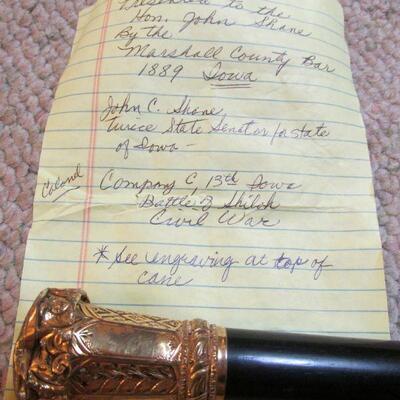 Presented to the
Hon. John Shane
By the
Marshall County Bar
1889 Iowa
John C. Shane
twice State Senator for state
of Iowa -
Colonel
Company C, 13th Iowa
Battle of Shiloh
Civil War
* See engraving at top of
cane